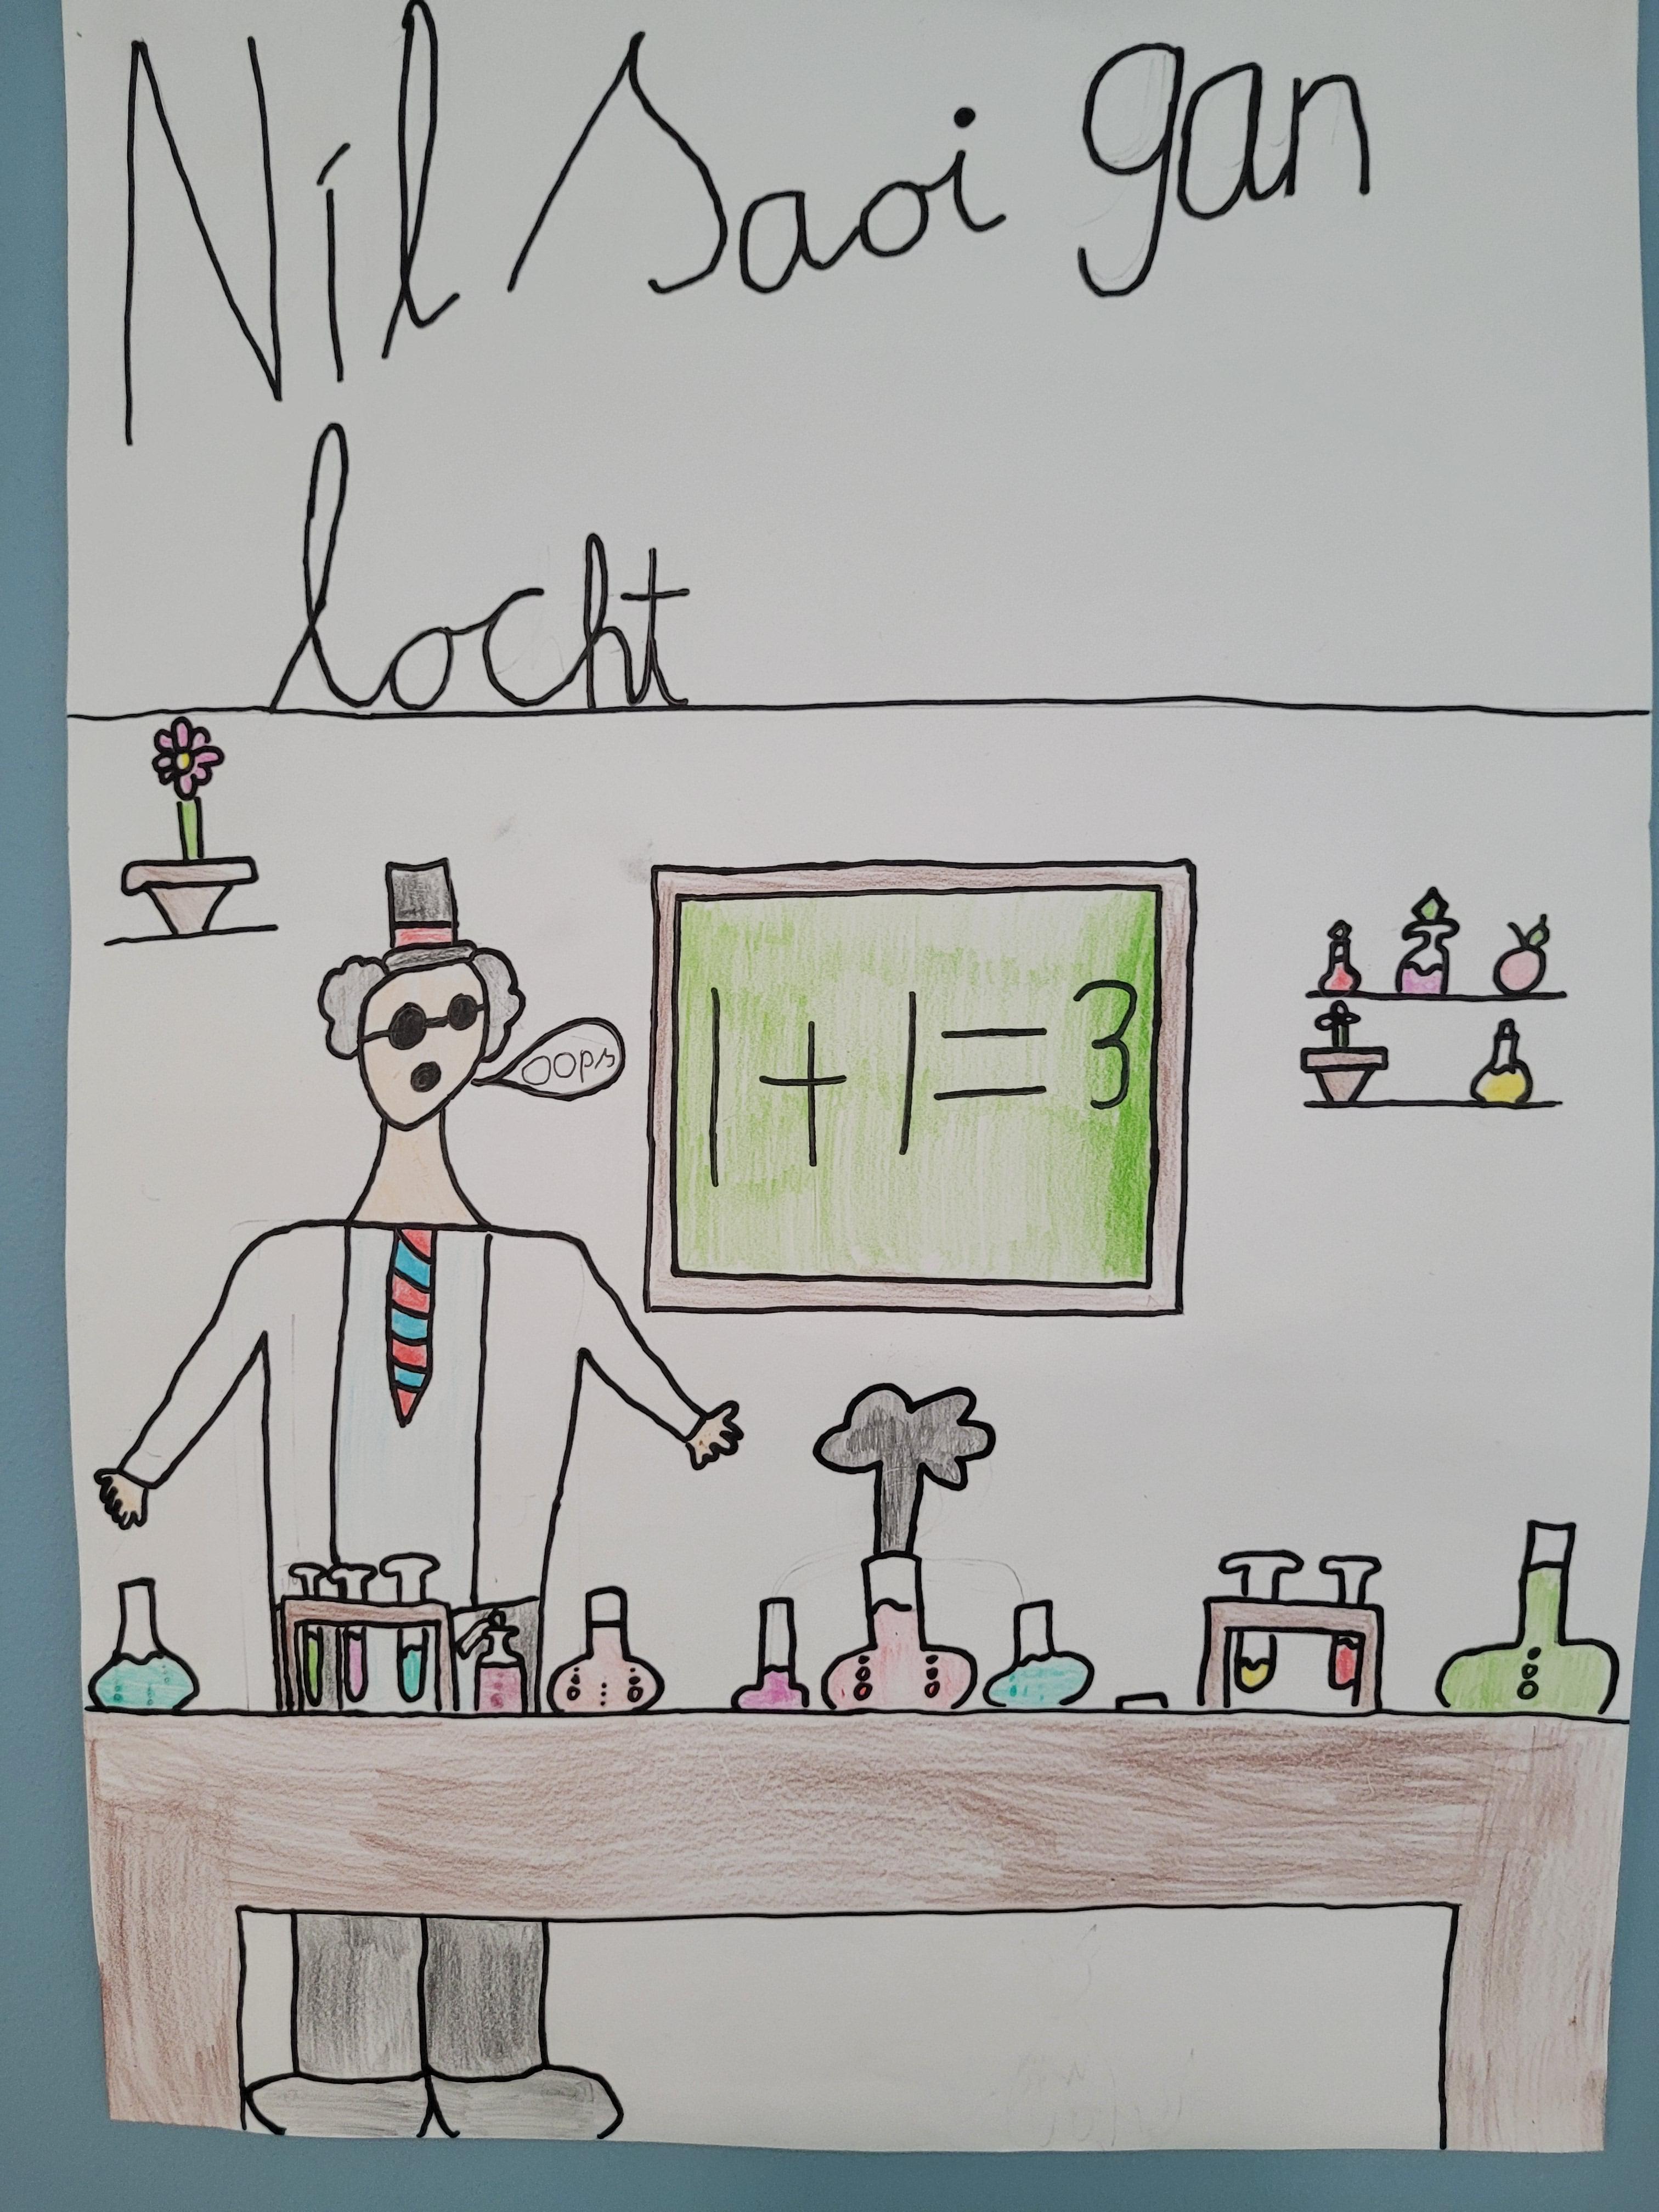 Níl Saoi gan
locht
oops
1+1=3